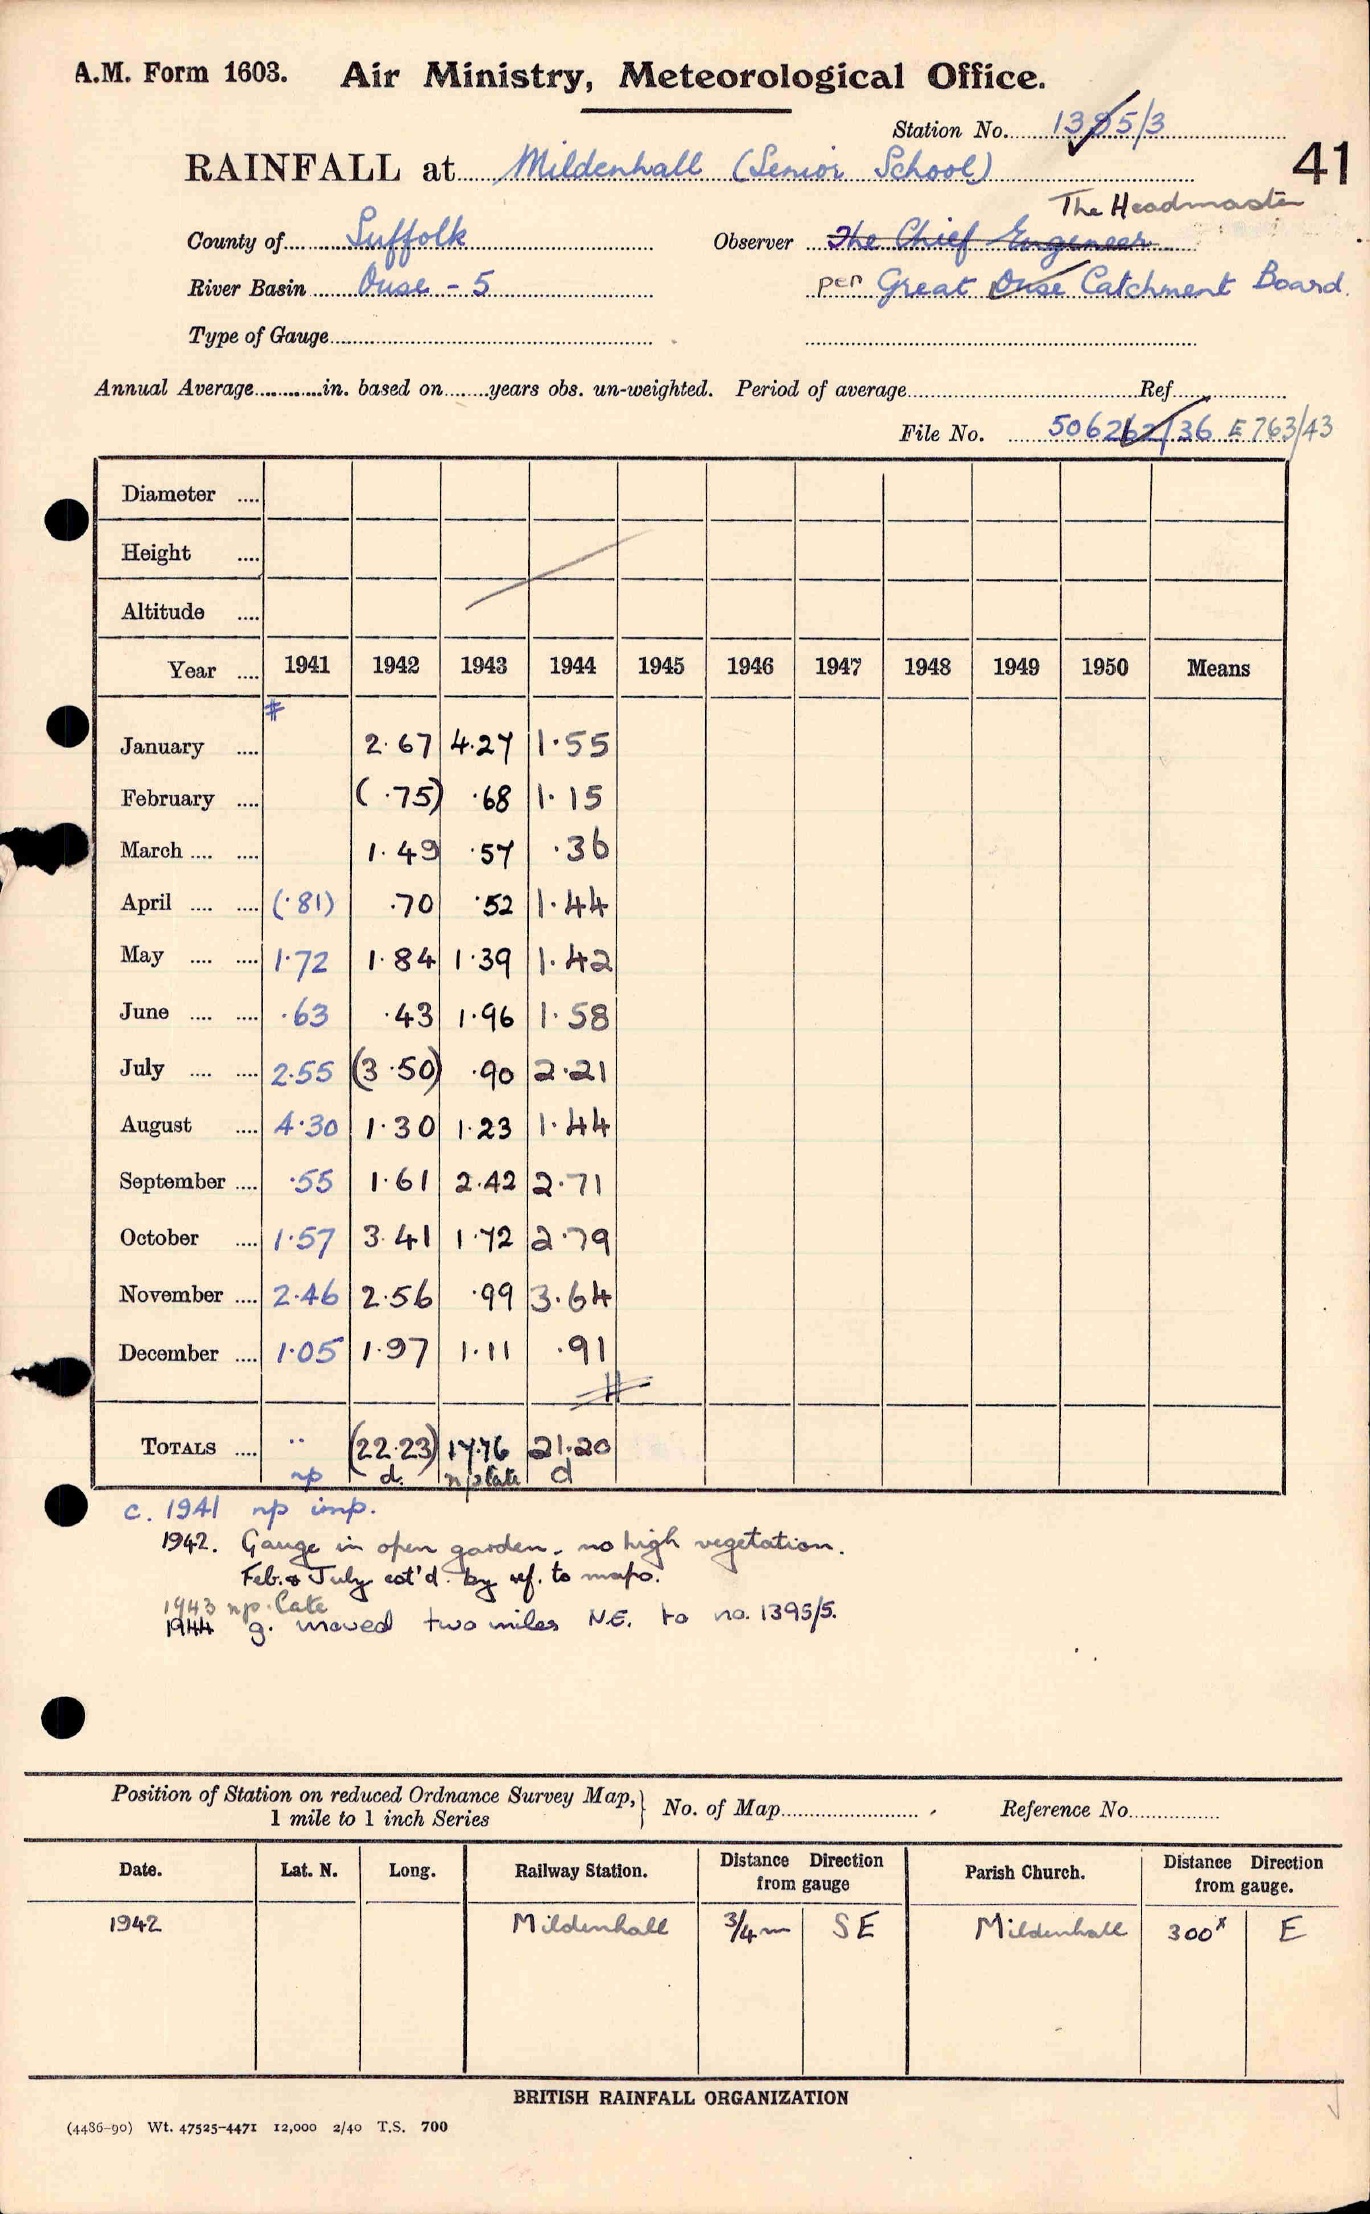 A.M. Form 1603. Air Ministry, Meteorological Office.
Station No. 1395/3
41
RAINFALL at Mildenhall (Senior School)
The Headmaster
County of Suffolk Observer The Chief Engineer
River Basin Ouse - 5 per Great Ouse Catchment Board.
Type of Gauge
Annual Average in. based on years obs. un-weighted. Period of average Ref
File No. 506262/36 E763/43
Diameter
Height
Altitude
Year 1941 1942 1943 1944 1945 1946 1947 1948 1949 1950 Means
January 2.67 4.27 1.55
February (.75) .68 1.15
March 1.49 .57 .36
April (.81) .70 .52 1.44
May 1.72 1.84 1.39 1.42
June .63 .43 1.96 1.58
July 2.55 (3.50) .90 2.21
August 4.30 1.30 1.23 1.44
September .55 1.61 2.42 2.71
October 1.57 3.41 1.72 2.79
November 2.46 2.56 .99 3.64
December 1.05 1.97 1.11 .91
TOTALS .. (22.23) 17.76 21.20
np d. np late d
c. 1941 np imp.
1942. Gauge in open garden. no high vegetation.
Feb. & July est'd. by ref. to maps.
1943 np. late
1944 g. moved two miles N.E. to no. 1395/5.
Position of Station on reduced Ordnance Survey Map, 1 mile to 1 inch Series } No. of Map Reference No.
Date. Lat. N. Long. Railway Station. Distance Direction from gauge Parish Church. Distance Direction from gauge.
1942 Mildenhall 3/4 m SE Mildenhall 300x E
BRITISH RAINFALL ORGANIZATION
(4486-90) Wt. 47525-4471 12,000 2/40 T.S. 700